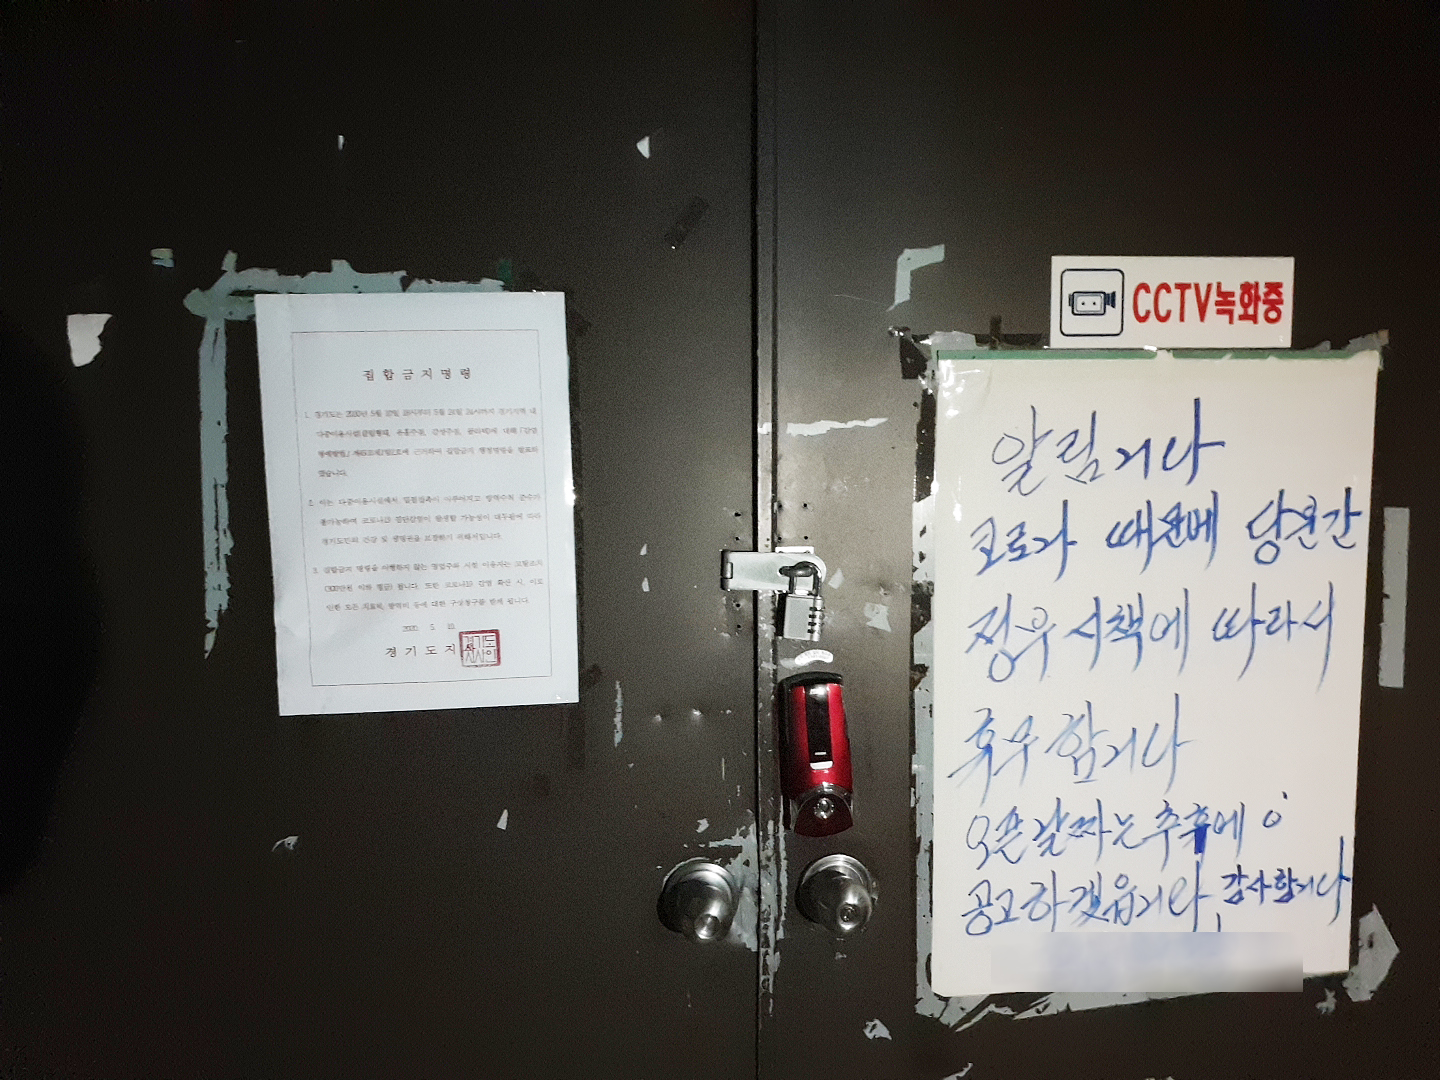 집합금지명령
1. 경기도는 2020년 5월 10일 18시부터 5월 24일 24시까지 경기지역 내
다중이용시설(클럽형태, 유흥주점, 감성주점, 콜라텍)에 대해 「감염
병예방법」 제49조제1항제2호에 근거하여 집합금지 행정명령을 발표하
였습니다.
2. 이는 다중이용시설에서 밀접접촉이 이루어지고 방역수칙 준수가
불가능하며 코로나19 집단감염이 발생할 가능성이 대두됨에 따라
경기도민의 건강 및 생명권을 보장하기 위해서입니다.
3. 집합금지 명령을 이행하지 않는 영업주와 시설 이용자는 고발조치
(300만원 이하 벌금) 됩니다. 또한 코로나19 감염 확산 시, 이로
인한 모든 치료비, 방역비 등에 대한 구상청구를 받게 됩니다.
2020. 5. 10.
경기도지사
경기도
지사인
CCTV녹화중
알림니다
코로나 때문에 당분간
정부 시책에 따라서
휴무 합니다
오픈날짜는 추후에
공고하겠읍니다, 감사합니다